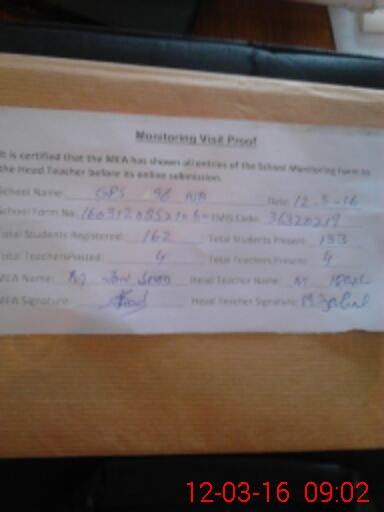 Monitoring Visit Proof
It is certified that the MEA has shown all entries of the School Monitoring Form to
the Head Teacher before its online submission.
School Name: GPS 98 Date: 12-3-16
School Form No. EMIS Code: 36320219
Total Students Registered: 162 Total Students Present: 133
Total TeachersPosted: 4 Total Teachers Present: 4
MEA Name: Head Teacher Name: M
MEA Signature: Head Teacher Signature:
12-03-16 09:02